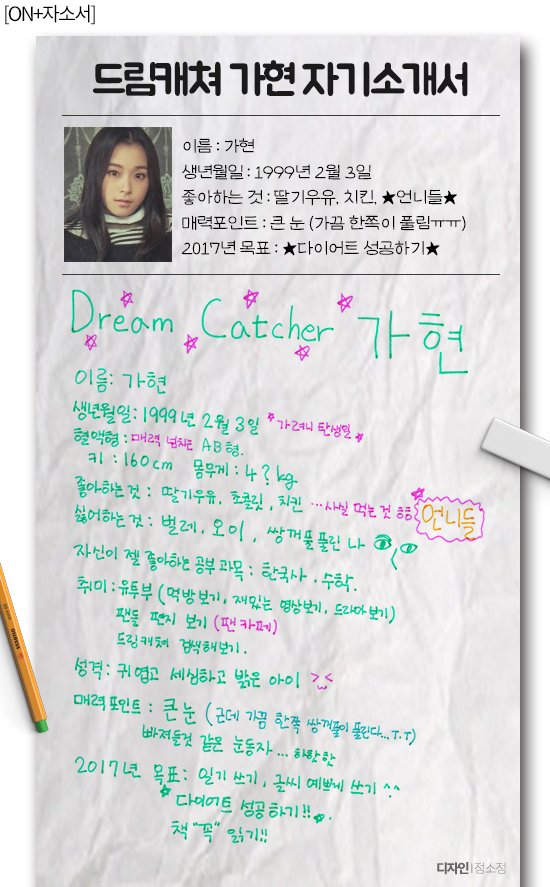 [ON+자소서]
드림캐쳐 가현 자기소개서
이름 : 가현
생년월일 : 1999년 2월 3일
좋아하는 것 : 딸기우유, 치킨, ★언니들★
매력포인트 : 큰 눈 (가끔 한쪽이 풀림ㅠㅠ)
2017년 목표 : ★다이어트 성공하기★
Dream Catcher 가현
이름: 가현
생년월일: 1999년 2월 3일 *가려니 탄생일*
혈액형: 매력 넘치는 AB형.
키: 160cm 몸무게: 4?kg
좋아하는 것: 딸기우유, 초콜릿, 치킨 ...사실 먹는 것 ㅎㅎ 언니들
싫어하는 것: 벌레, 오이, 쌍꺼풀 풀린 나
자신이 젤 좋아하는 공부 과목: 한국사. 수학.
취미: 유투부 (먹방보기, 재밌는 영상보기, 드라마 보기)
팬들 편지 보기 (팬카페)
드림캐쳐 검색해보기.
성격: 귀엽고 세심하고 밝은 아이 >_<
매력포인트: 큰 눈 (근데 가끔 한쪽 쌍꺼풀이 풀린다...T.T)
빠져들것 같은 눈동자... 하핳핳
2017년 목표: 일기 쓰기, 글씨 예쁘게 쓰기 ^^
*다이어트 성공하기!!*
책 "꼭" 읽기!!
디자인 | 정소정